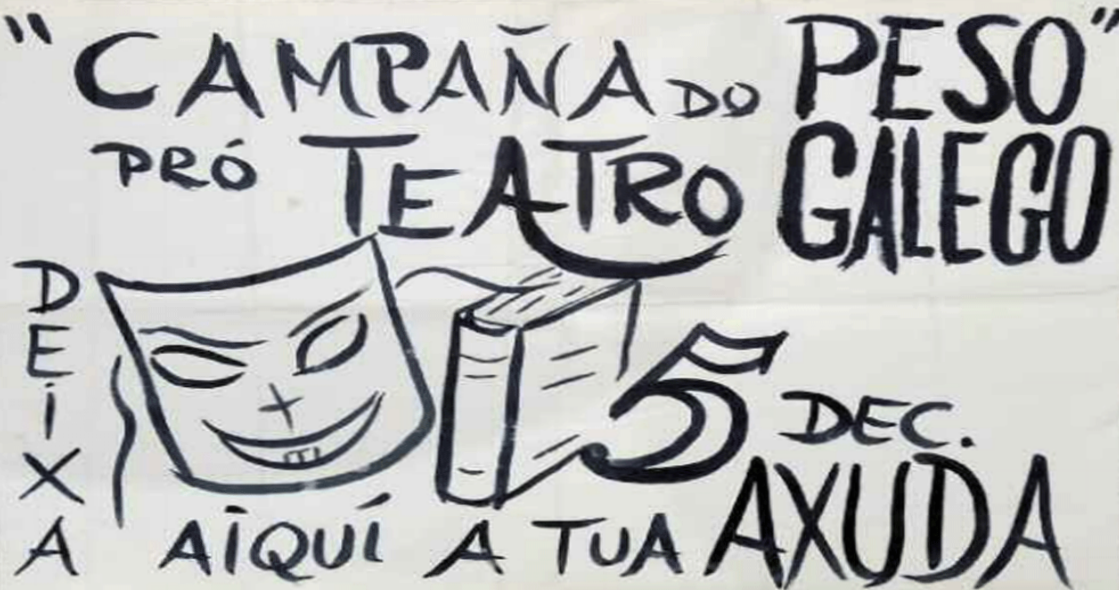 "CAMPAÑA DO PESO"
PRÓ TEATRO GALEGO
5 DEC.
DEIXA AIQUÍ A TUA AXUDA